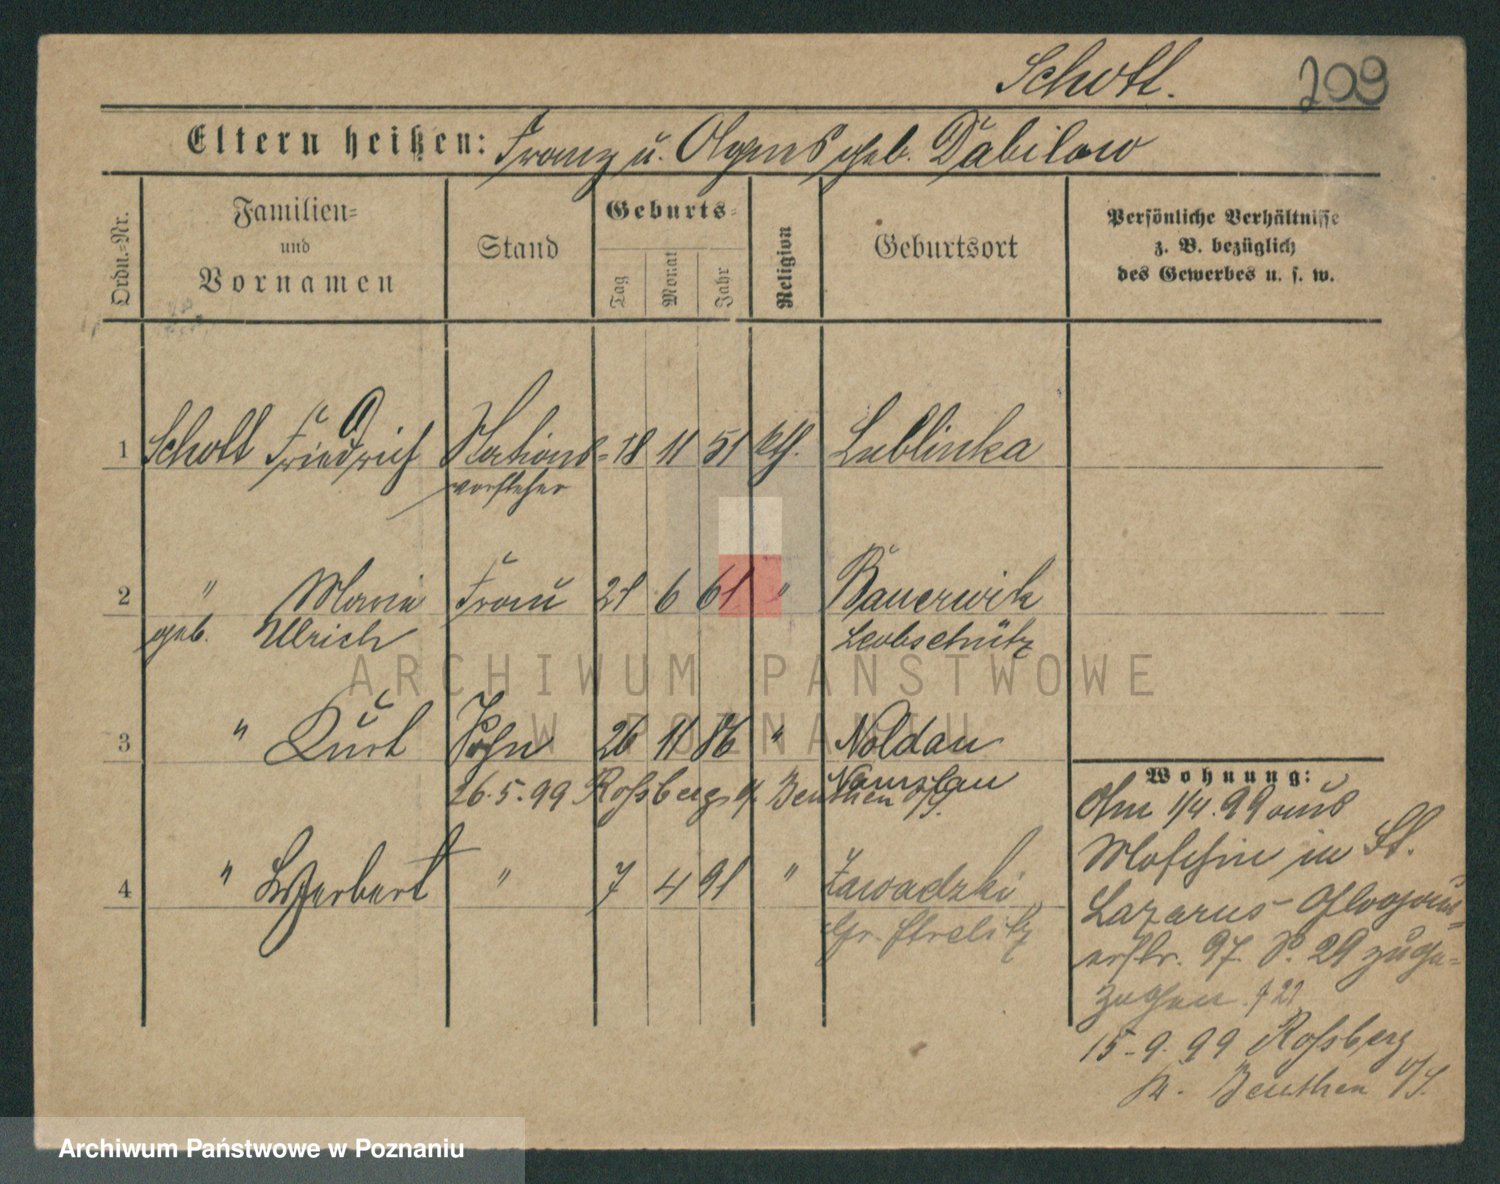 Schott.
209
Eltern heißen: Franz u. Agnes geb. Dabilow
Ordn.-Nr.
Familien-
und
Vornamen
Stand
Geburts-
Tag
Monat
Jahr
Religion
Geburtsort
Persönliche Verhältnisse
z. B. bezüglich
des Gewerbes u. s. w.
1 Schott Friedrich Stations- 18 11 51 kth. Lublinka
vorsteher
2 " Maria Frau 21 6 61 " Bauerwitz
geb. Ulrich Leobschütz
3 " Kurt Sohn 26 11 86 " Noldau
Namslau
26.5.99 Roßberg b/ Beuthen O/S.
4 " Herbert " 7 4 91 " Zawadzki
Gr. Strelitz
Wohnung:
Am 1/4. 99 aus
Moschin in St.
Lazarus Glogau-
erstr. 97. b. 29 zuge-
zogen.
15-9. 99 Roßberg
Kr. Beuthen O/S.
ARCHIWUM PAŃSTWOWE
W POZNANIU
Archiwum Państwowe w Poznaniu